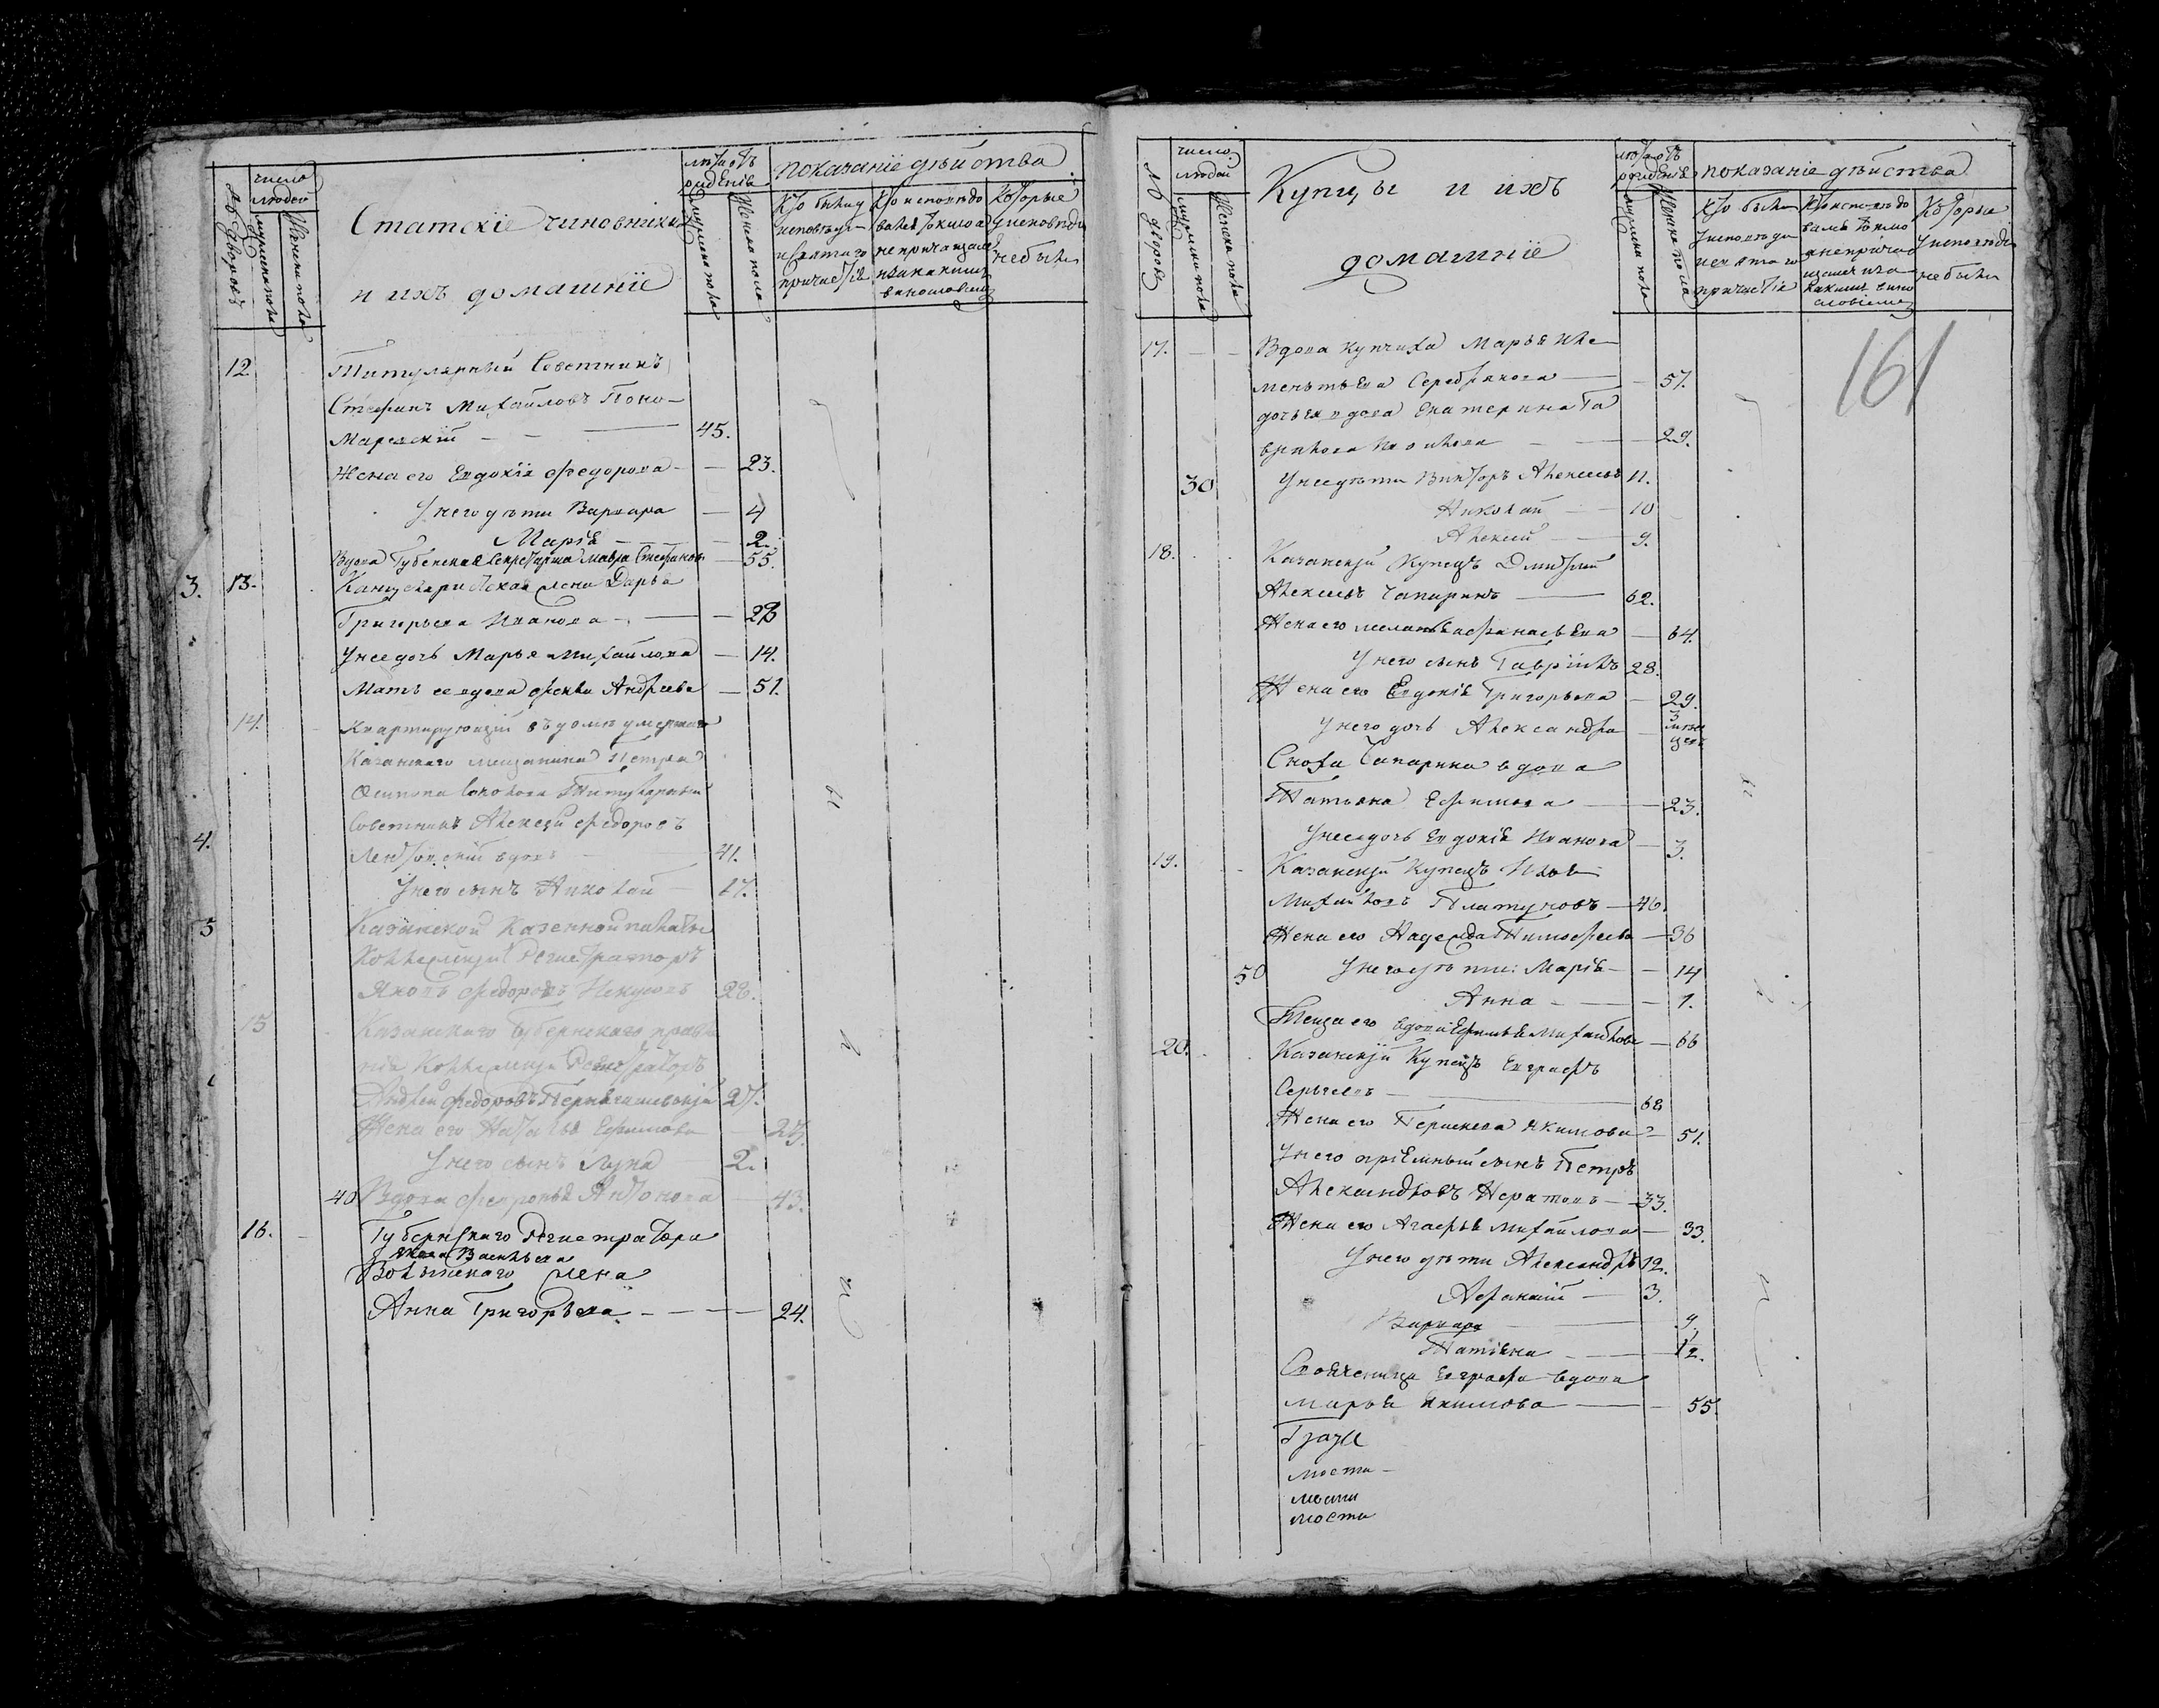 № дворовъ
число людей
мужеска пола
Женска пола
Статскіе чиновники
и ихъ домашніе
лѣта отъ рожденія
мужеска пола
Женска пола
показаніе дѣйства
Кто были у исповѣди и святаго причастія
Кто исповѣдовался токмо а не причащался и за какимъ винословіемъ
Которые у исповѣди не были
12. Титулярный Советникъ
Стефанъ Михайловъ Поно-
маревскій 45.
Жена его Евдокія Федорова 23.
У него дѣти Варвара 4
Марія 2.
Вдова Губенская Секретарша Мавра Стефанова 55.
3. 13. Канцеляристская жена Дарья
Григорьева Иванова 28
У нее дочь Марья Михайлова 14.
Мать ее вдова Фекла Андреева 51.
14. Квартирующій въ домѣ умершаго
Казанскаго мещанина Петра
Осипова Соколова Титулярный
Советникъ Алексѣй Федоровъ
4. вдовъ 41.
У него сынъ Николай 17.
5 Казанской Казенной палаты
Коллежскій Регистраторъ
Яковъ Федоровъ 28.
15 Казанскаго Губернскаго правле
нія Коллежскій Регистраторъ
Андрей Федоровъ 27.
Жена его Наталья Ефимова 23.
У него сынъ Лука 2.
40 Вдова Февронья Антонова 43.
16. Губернскаго Регистратора
Васильева
Волынскаго жена
Анна Григорьева 24.
№ дворовъ
число людей
мужеска пола
Женска пола
Купцы и ихъ
домашніе
лѣта отъ рожденія
мужеска пола
Женска пола
показаніе дѣйства
Кто были у исповѣди и святаго причастія
Кто исповѣдовался токмо а не причащался и за какимъ винословіемъ
Которые у исповѣди не были
161
17. Вдова купчиха Марья Кле-
ментьева Серебрякова 57.
дочь ея вдова Екатерина Га
врилова 29.
30 У нее дѣти Викторъ Алексѣевъ 11.
Николай 10
Алексѣй 9.
18. Казанскій Купецъ Дмитрій
Алексѣевъ Чапаринъ 62.
Жена его Меланья Афанасьева 64.
У него сынъ Гавріилъ 28.
Жена его Евдокія Григорьева 29.
У него дочь Александра 3 месяцевъ
Сноха Чапарина вдова
Татьяна Ефимова 23.
У нее дочь Евдокія Иванова 3.
19. Казанскій Купецъ Илья
Михайловъ Платуновъ 46.
Жена его Надежда Тимофеева 36
50 У него дѣти: Марія 14
Анна 7.
Теща его вдова Ефимья Михайлова 66
20. Казанскій Купецъ Евграфъ
Сергѣевъ 68
Жена его Перасковья Якимова 51.
У него пріемный сынъ Петръ
Александровъ 33.
Жена его Агафья Михайлова 33.
У него дѣти Александръ 12.
3.
Варвара 9.
Татіяна 1/2.
Своячница Евграфа вдова
Марья Якимова 55.
мости
мости